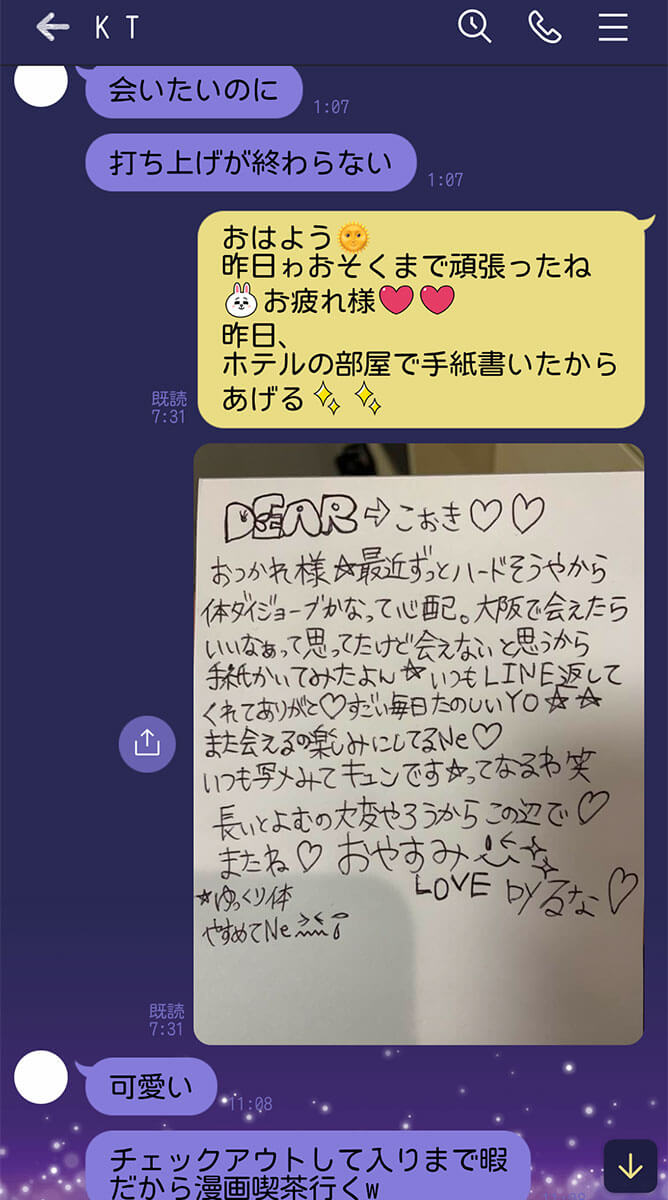 KT
会いたいのに
1:07
打ち上げが終わらない
1:07
おはよう🌞
昨日ゎおそくまで頑張ったね
お疲れ様❤️❤️
昨日、
ホテルの部屋で手紙書いたから
あげる✨✨
既読
7:31
DEAR⇨こおき♡♡
おつかれ様☆最近ずっとハードそうやから
体ダイジョーブかなって心配。大阪で会えたら
いいなぁって思ってたけど会えないと思うから
手紙かいてみたよん☆いつもLINE返して
くれてありがと♡すごい毎日たのしいYO☆☆
また会えるの楽しみにしてるNe♡
いつも写メみてキュンです☆ってなるわ笑
長いとよむの大変やろうからこの辺で♡
またね♡おやすみ
LOVE byるな♡
☆ゆっくり体
やすめてNe
既読
7:31
可愛い
11:08
チェックアウトして入りまで暇
だから漫画喫茶行くw